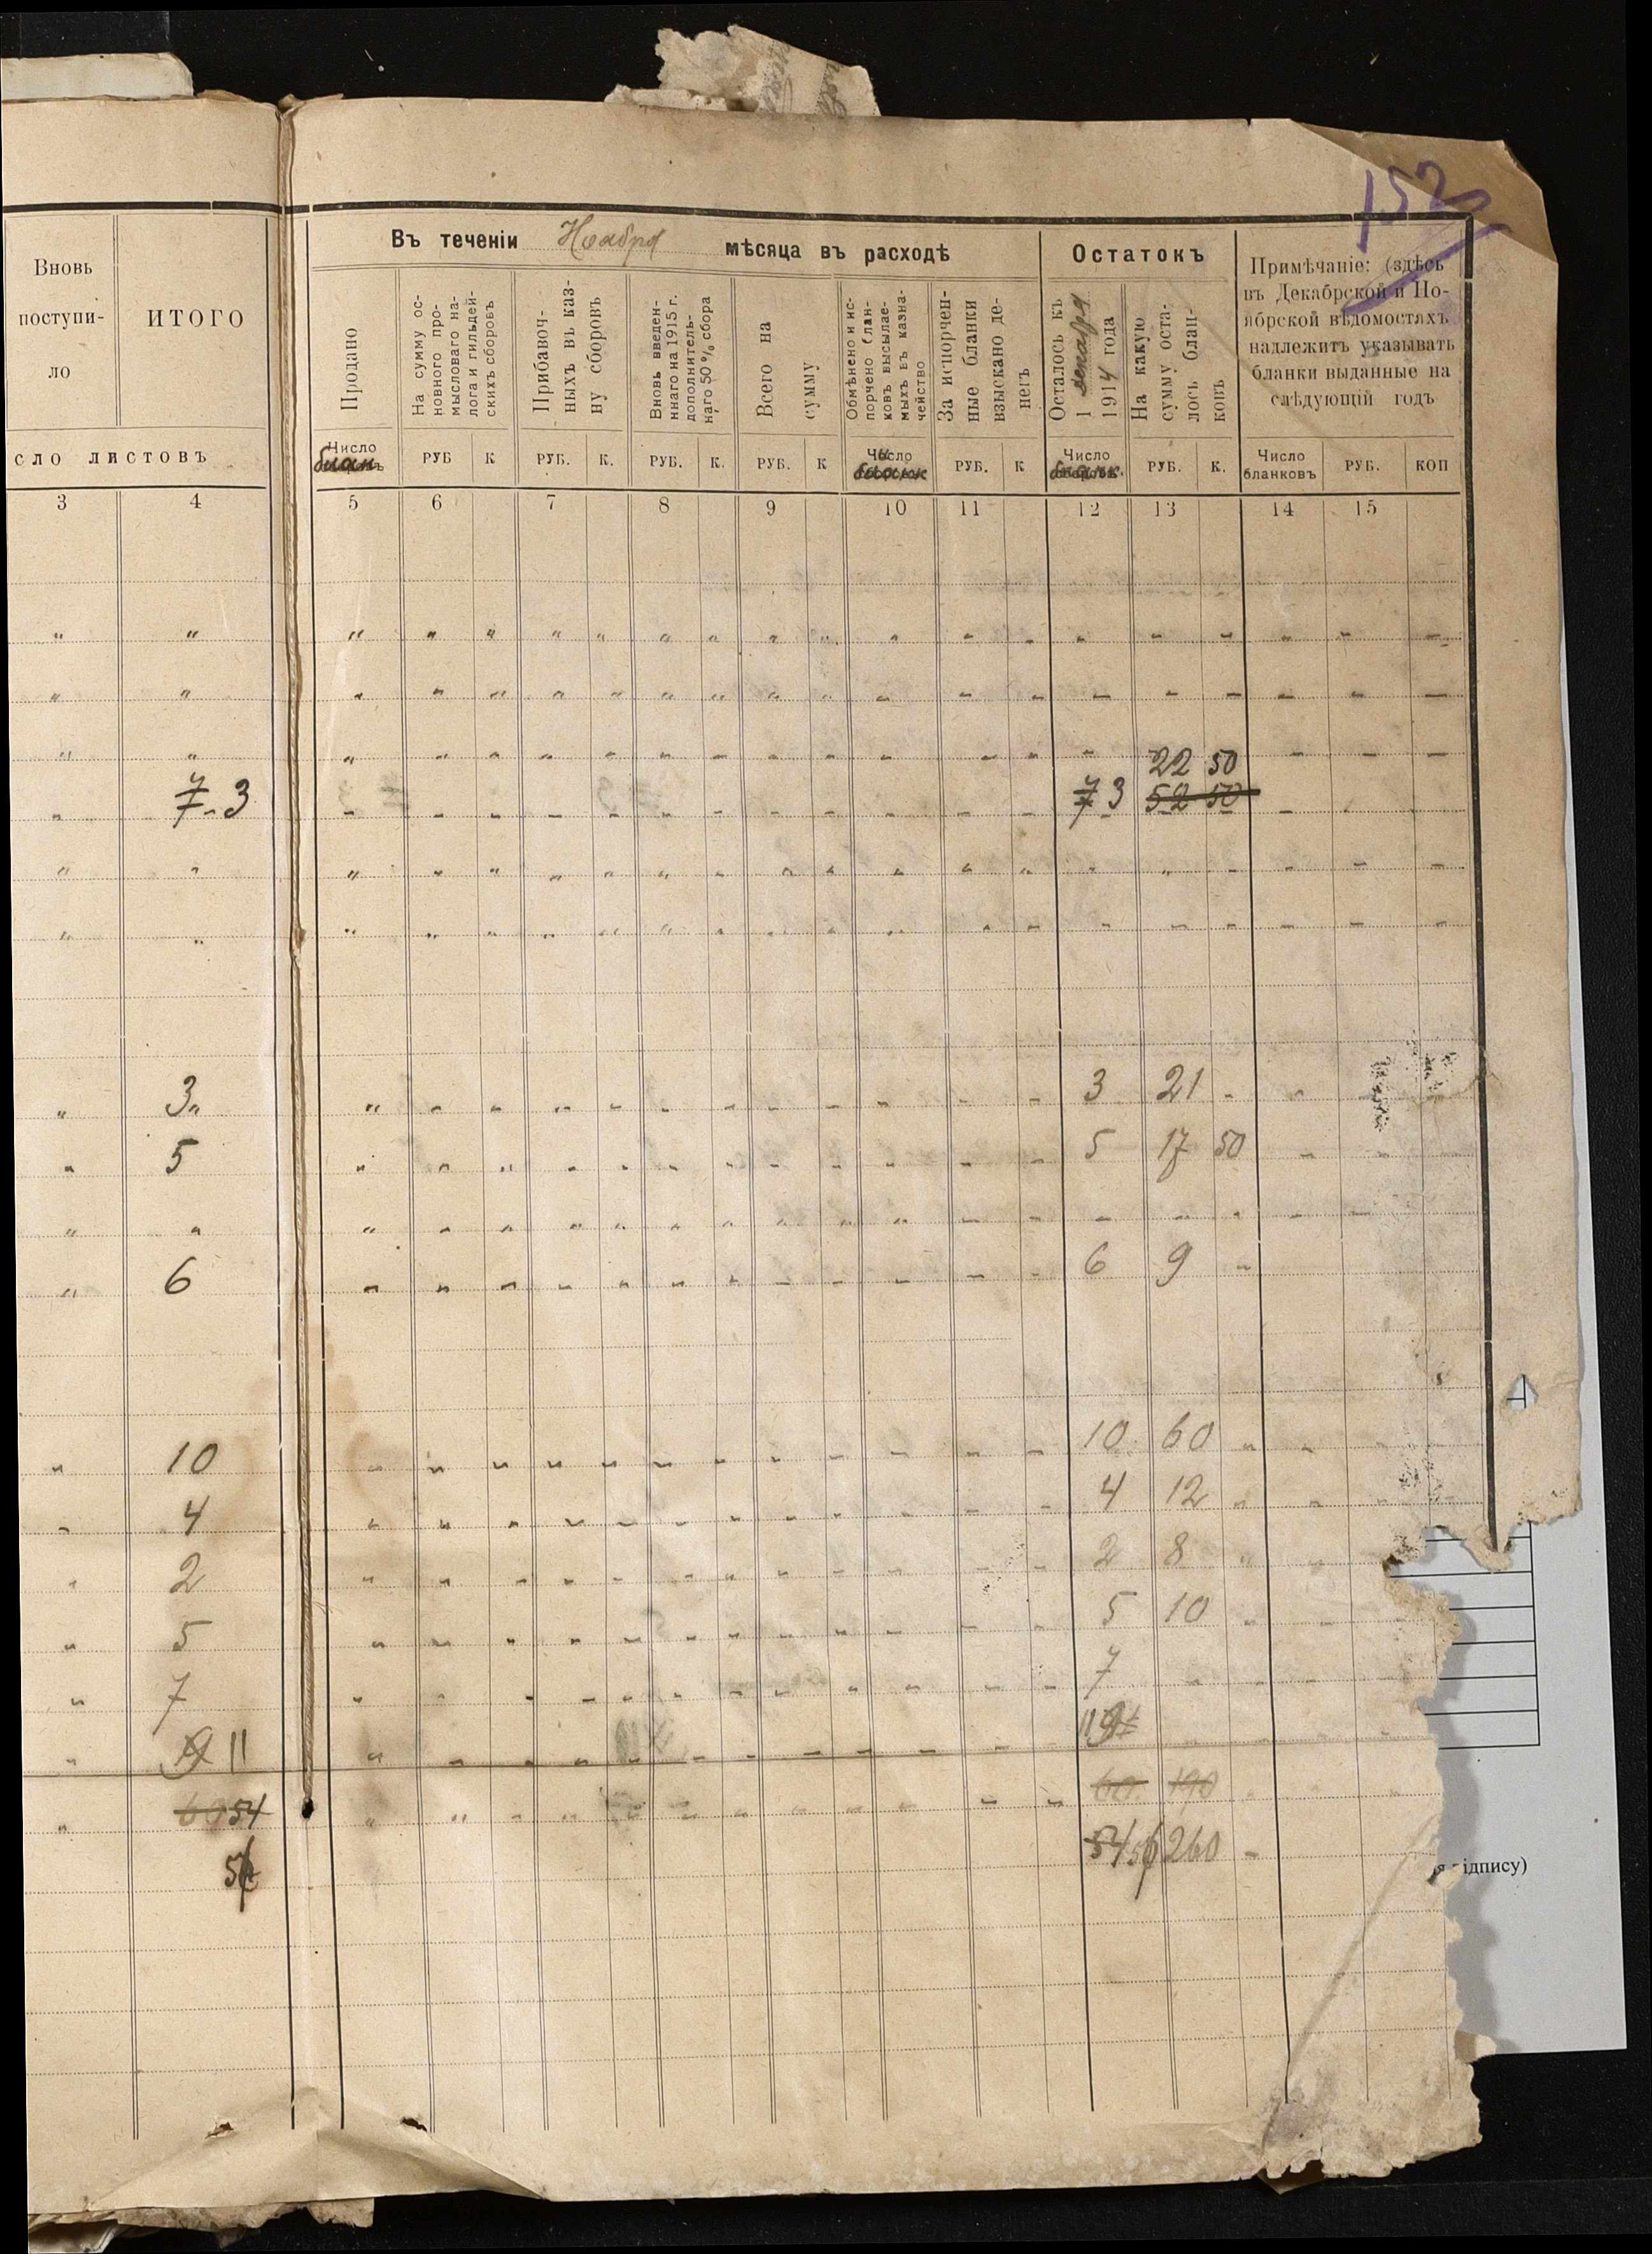 152
Въ теченіи Ноября мѣсяца въ расходѣ
Остатокъ
Вновь
поступи-
ло
ИТОГО
Продано
На сумму ос-
новного про-
мысловаго на-
лога и гильдей-
скихъ сборовъ
Прибавоч-
ныхъ въ каз-
ну сборовъ
Вновь введен-
ннаго на 1915 г.
дополнитель-
наго 50 % сбора
Всего на
сумму
Обмѣнено и ис-
порчено блан-
ковъ высылае-
мыхъ въ казна-
чейство
За испорчен-
ные бланки
взыскано де-
негъ
Осталось къ
1 декабря
1914 года
На какую
сумму оста-
лось блан-
ковъ
Примѣчаніе: (здѣсь
въ Декабрской и Но-
ябрской вѣдомостяхъ
надлежитъ указывать
бланки выданные на
слѣдующій годъ
сло листовъ
Число бланк
РУБ К
РУБ. К.
РУБ. К.
РУБ. К
Число бланк
РУБ. К
Число бланк.
РУБ. К.
Число бланковъ
РУБ. КОП
3 4 5 6 7 8 9 10 11 12 13 14 15
" " " " " " " " " " " " - - - - - - - -
" " " " " " " " " " " - - - - - - - - -
" " " " " " " " " - - - - - - - - - -
22 50
" 7 - 3 - - - - - - - - - - - - 7 3 52 50 -
" " " " " " " " " " " " " " " " " - - - -
" " " " " " " " " " " " " " - - - - - - -
" 3 " " " " " " " " " " " - - 3 21 - "
" 5 " " " " " " " " " " - - 5 17 50 - -
" " " " " " " " " " " " - - - - " - -
" 6 " " " " " " " - - - - - 6 9 "
" 10 " " " " " " " " " - - - 10 60 " "
" 4 " " " " " " " " " " - - 4 12 " " -
" 2 " " " " " " " " " " - - 2 8 " "
" 5 " " " " " " " " " " - - 5 10 " -
" 7 " " " " " " " " " " - - 7 - - - - -
" 9 11 " - - - - - - - - - - - 11 9
" 60 54 " " " " " " " " " " - - 60 190
56 54 56 260 -
я підпису)